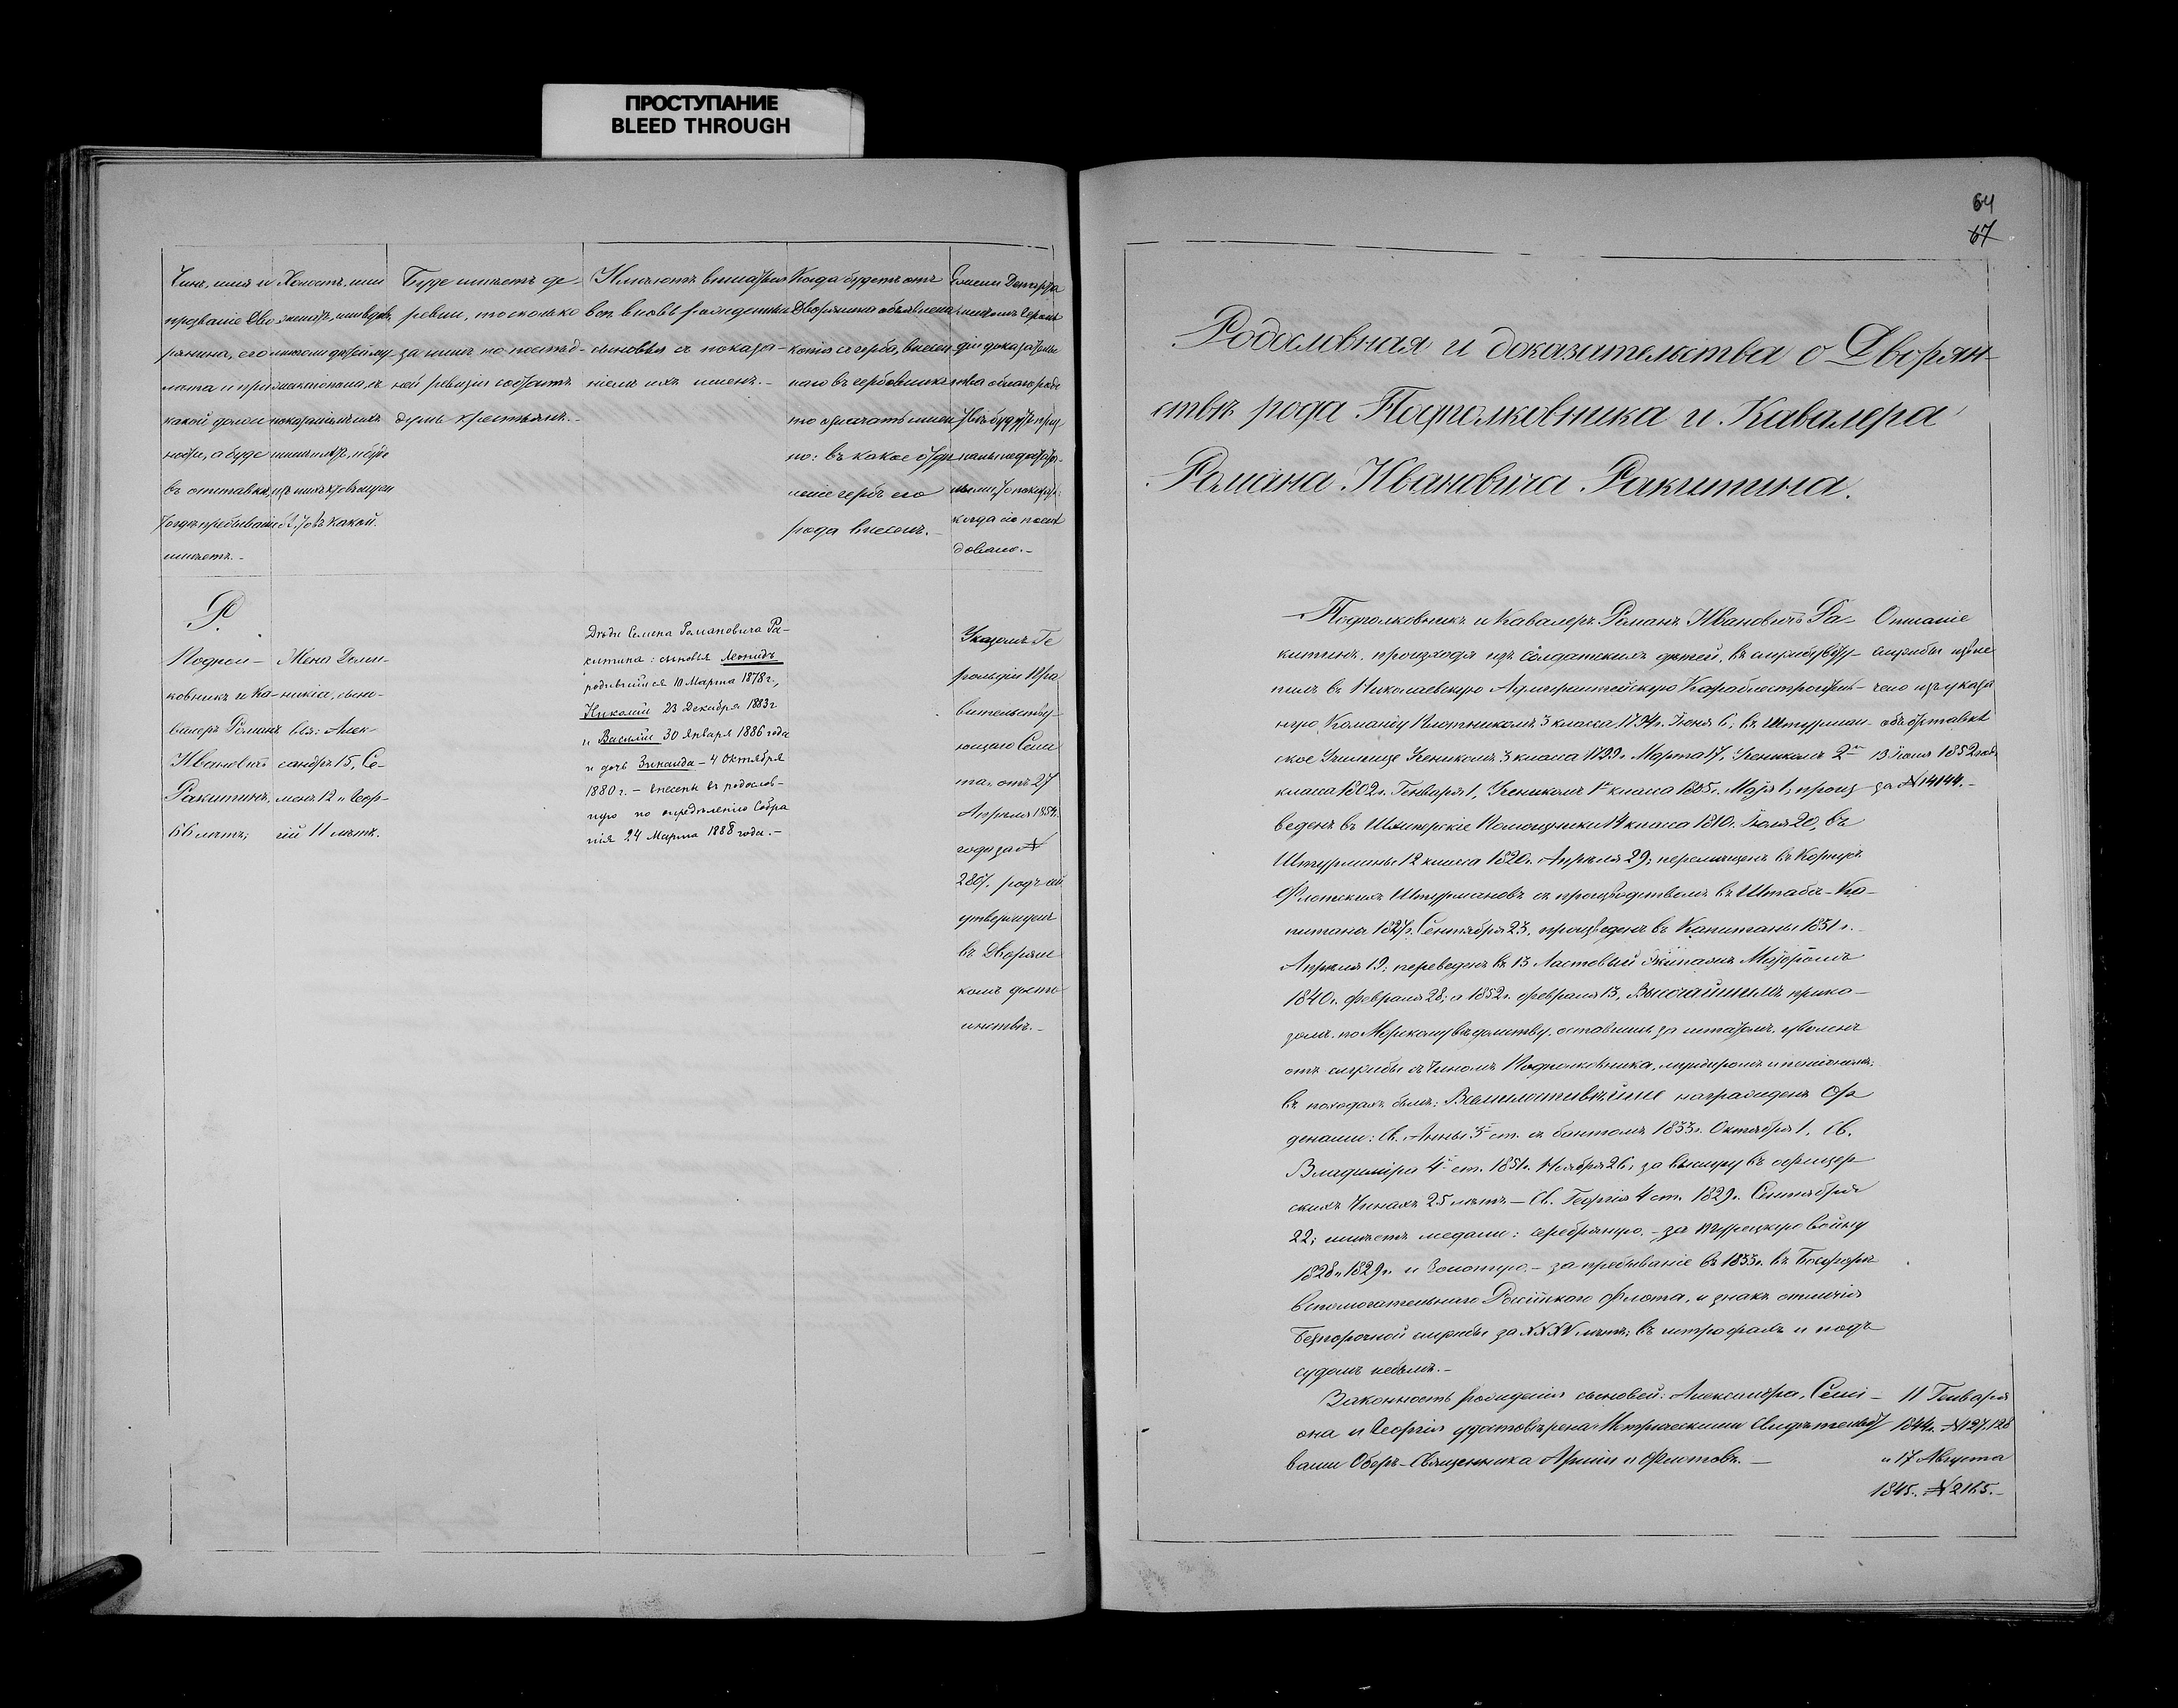 ПРОСТУПАНИЕ
BLEED THROUGH
Чинъ, имя и
прозваніе Дво-
рянина, его
лѣта и при
какой должн
ности, а буде
въ отставкѣ,
то гдѣ пребываніе
имѣетъ.-
Холостъ, или
женатъ, или вдовъ,
показаніемъ ихъ
Буде имѣетъ де-
ревни, то сколько
за нимъ по послѣд-
ней ревизіи состоитъ
душъ крестьянъ.-
вновь рожденныхъ
сыновья съ показа-
ніемъ ихъ именъ.-
Когда будетъ отъ
Дворянина объявлена
копія съ герба, внесен
наго въ гербовникъ
то означать имен
но: въ какое отдѣ
леніе гербъ его
рода внесенъ.-
когда
довано.-
Р.
Подпол-
ковникъ и Ка-
валеръ Романъ
Ивановичъ
Ракитинъ,
66 лѣтъ;
Жена Доми-
никія, сыно-
вья: Алек-
сандръ 15, Се-
менъ 12 и Геор-
гій 11 лѣтъ.
Дѣти Семена Романовича Ра-
китина: сыновья Леонидъ
родившійся 10 Марта 1878 г.,
Николай 23 Декабря 1883 г
и Василій 30 Января 1886 года
и дочь Зинаида - 4 Октября
1880 г. - внесены въ родослов-
ную по опредѣленію Собра
нія 24 Марта 1888 года.-
Указомъ Ге
рольдіи Пра
вительству-
ющаго Сена
та, отъ 27
Апрѣля 1854.
года за №
2807. родъ сей
утвержденъ
въ Дворянс
комъ досто
инствѣ.-
64
67
Родословная и доказательства о Дворян-
ствѣ рода Подполковника и Кавалера
Романа Ивановича Ракитина.
Подполковникъ и Кавалеръ Романъ Ивановичъ Ра-
китинъ, происходя изъ солдатскихъ дѣтей, въ службу всту-
пилъ въ Николаевскую Адмиралтейскую Караблестроитель-
ную Команду Плотникомъ 3 класса, 1794 г. Іюня 6, въ Штурман-
ское Училище Ученикомъ 3 класса 1799 г. Марта 17, Ученикомъ 2го
класса 1802 г. Генваря 1, Ученикомъ 1го класса 1805 г. Мая 1, произ-
веденъ въ Шкиперскіе Помощники 14 класса 1810. Іюля 20, въ
Штурманы 12 класса 1820 г. Апрѣля 29; перемѣщенъ въ Корпусъ
Флотскихъ Штурмановъ съ производствомъ въ Штабсъ-Ка-
питана 1827 г. Сентября 23, произведенъ въ Капитаны 1831 г.
Апрѣля 19; переведенъ въ 13 Ластовый Экипажъ Маіоромъ
1840 г. февраля 28; а 1852 г. февраля 13, Высочайшимъ прика-
зомъ по Морскому вѣдомству, оставшись за штатомъ, уволенъ
отъ службы съ Чиномъ Подполковника, мундиромъ и пенсіономъ;
въ походахъ былъ; Всемилостивѣйше награжденъ Ор
денами: Св. Анны 3й ст. съ бантомъ 1833 г. Октября 1, Св.
Владиміра 4й ст. 1851 г. Ноября 26, за выслугу въ офицер
скихъ Чинахъ 25 лѣтъ - Св. Георгія 4 ст. 1829 г. Сентября
22; имѣетъ медали: серебряную - за Турецкую войну
1828 и 1829 г. и Золотую - за пребываніе въ 1833 г. въ Босфорѣ
вспомогательнаго Россійскаго Флота, и знакъ отличія
безпорочной службы за XXXV лѣтъ; въ штрафахъ и подъ
судомъ небылъ.-
Описаніе
службы извле
чено изъ указа
объ отставкѣ
13 Іюня 1852 года
за № 14144.-
Законность рожденія сыновей: Александра, Семі-
она и Георгія удостовѣрена Метрическими Свидѣтельст
вами Оберъ-Священника Арміи и Флотовъ.-
11 Генваря
1844 г. № 127, 128
и 17 Августа
1845. № 2165.-